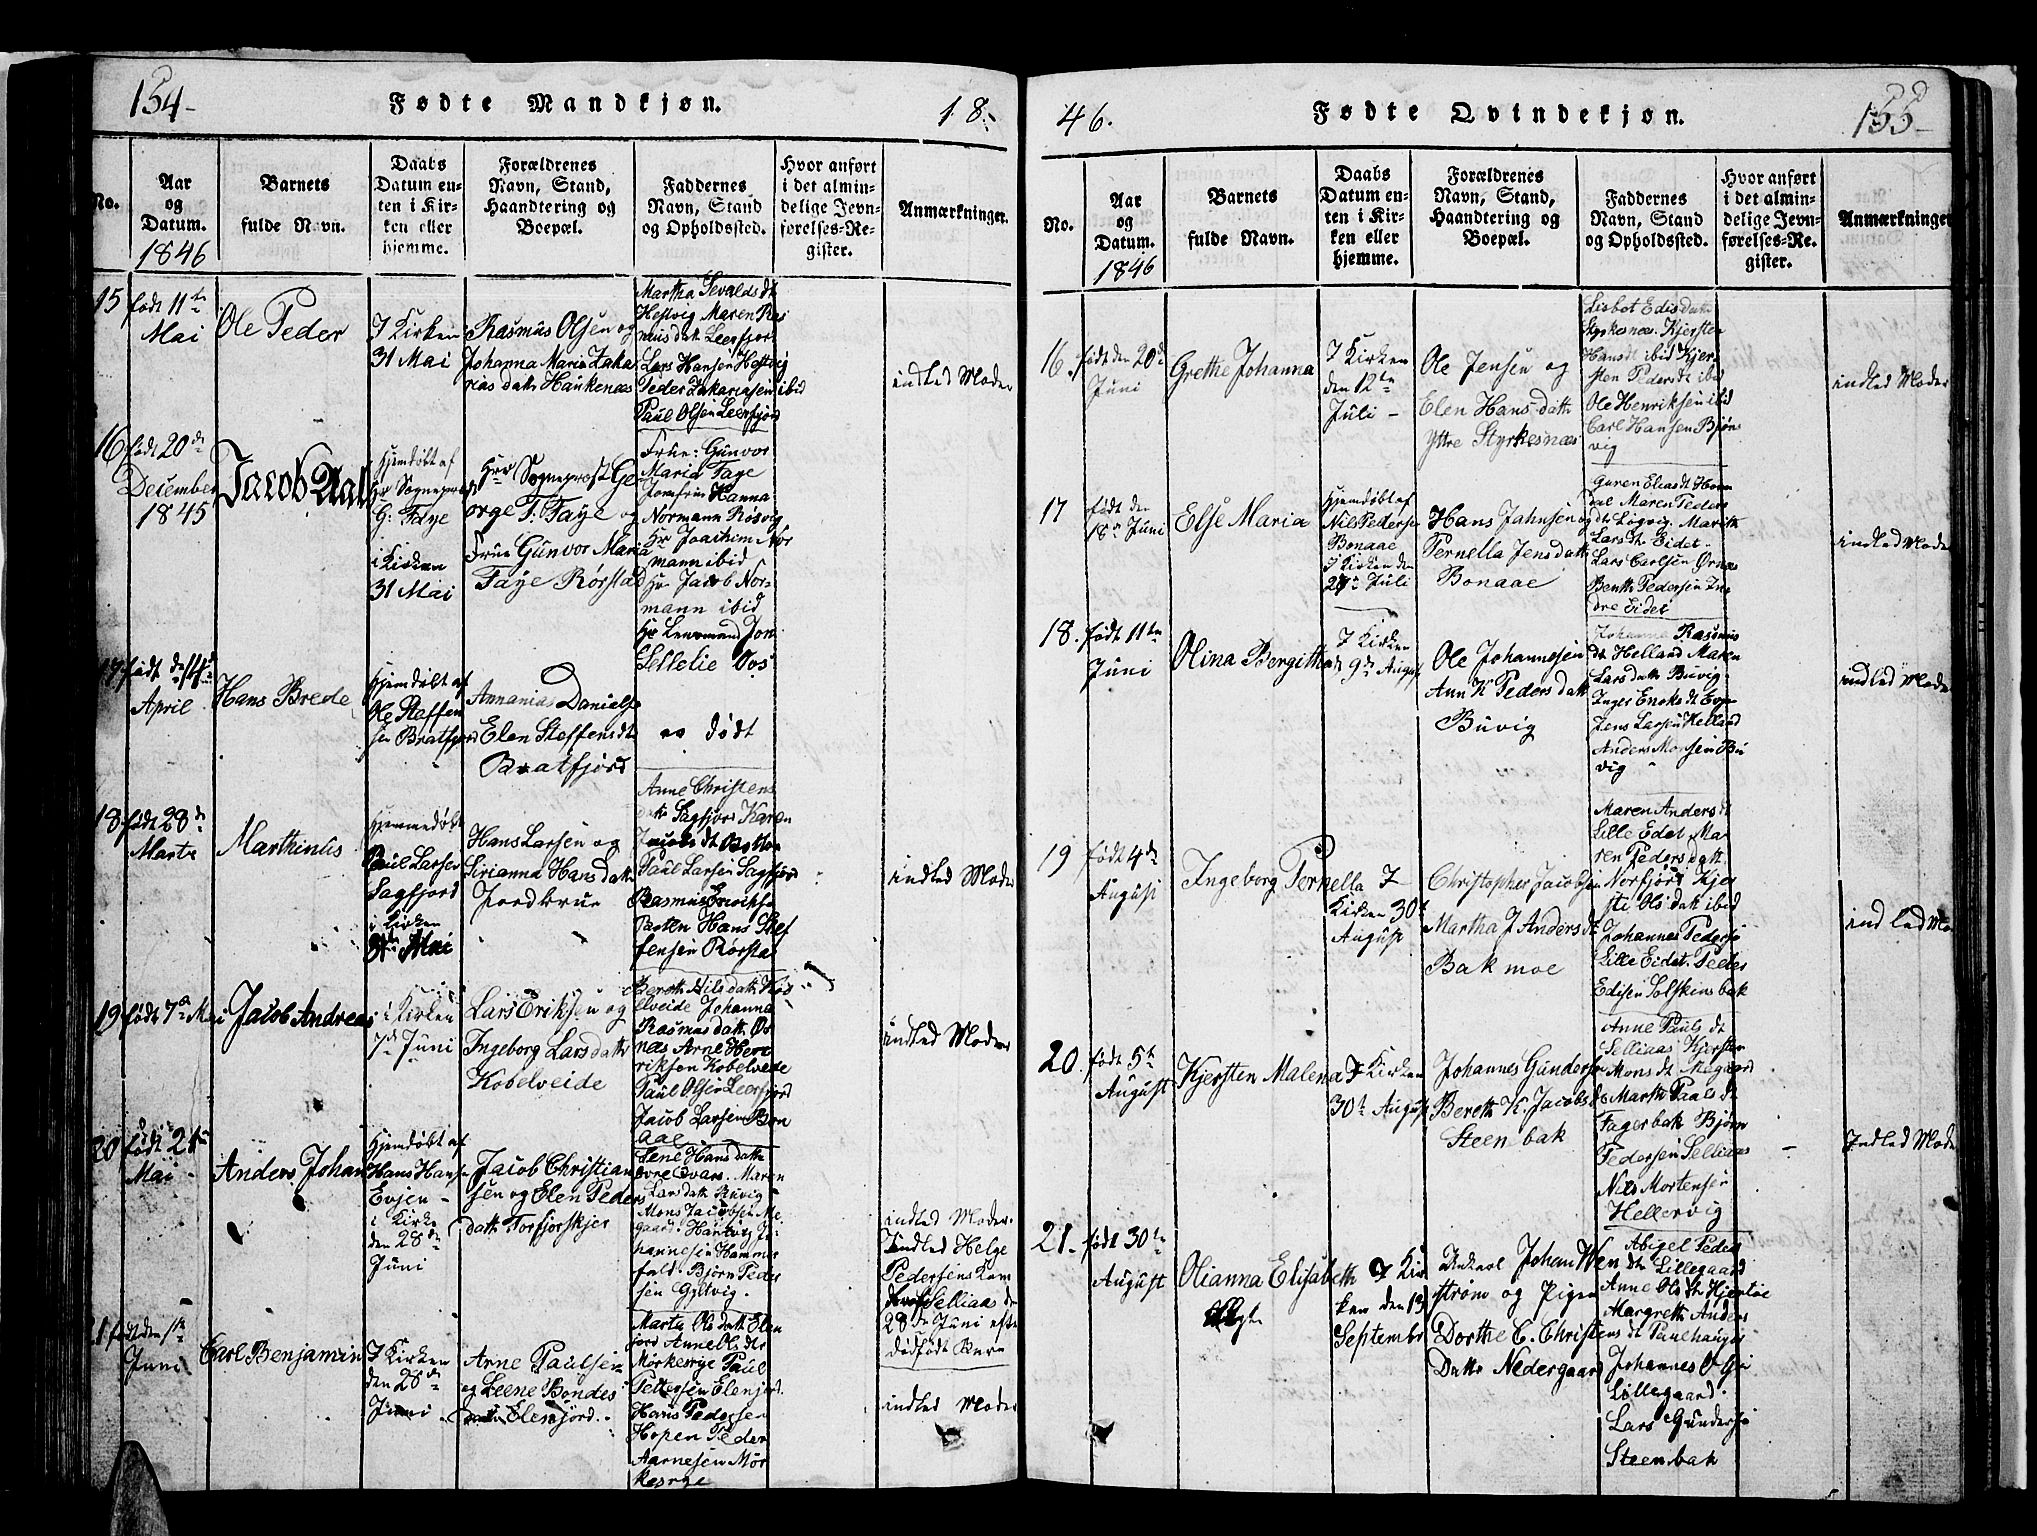 154-
Fødte Mandkjøn.
18-
No.
Aar
og
Datum.
1846
Barnets
fulde Navn.
Daabs
Datum en-
ten i Kir-
ken eller
hjemme.
Forældrenes
Navn, Stand,
Haandtering og
Boepæl.
Faddernes
Navn, Stand
og Opholdssted.
Hvor anført
i det almin-
delige Jevn-
førelses-Re-
gister.
Anmærkninger.
15
født 11te
Mai
Ole Peder
I Kirken
31 Mai
Rasmus Olsen og
Johanna Maria Zaka
rias datt Haukenæs
Martha Sevalds dt
Hestvig Maren Ras
mus datt Leerfjor
Lars Hansen Hestvig
Peder Zakariasen ibid
Paul Olsen Leerfjord
indled Moder
16
født 20de
December
1845
Jacob Aall
Hjemdøbt af
Hr Sogneprost
G: Faye
i Kirken
31 Mai
Hrr Sogneprost Ge
orge F: Faye og
Frue Gunvor Maria
Faye Rørstad
Frue: Gunvor
Maria Faye
Jomfru Hanna
Normann Røsvig
Hr Joachim Nor
mann ibid
Hr Jacob Nor-
mann ibid
Hr Lensmand Jon
Sellelie Vos
17
født
April
Hans Brede
Hjemdøbt af
Ole Staffen
sen Bratfjord
Annanias Danielse
Elen Steffens dt
Bratfjord
er Født
18
født 28de
Marts
Marthinus
Hjemmedøbt
Paul Larsen
Sagfjord
i Kirken
31te Mai
Hans Larsen og
Sirianna Hans datt
Anne Christens
datt Sagfjord Karen
Paul Larsen Sagfjord
Rasmus Erichse
Hans Stef
fensen Rørsta
indled Moder
19
født 7de Mai
Jacob Andreas
i Kirken
7de Juni
Lars Eriksen og
Ingeborg Lars datt
Kobelveide
Bereth Nils datt Kob
elveide Johanna
Rasmus datt Ør
næs Arne Hen
riksen Kobelveide
Paul Olsen Leerfjord
Jacob Larsen Bon
aae
indled Moder
20
født 21
Mai
Anders Johan
Hjemdøbt af
Hans Hanse
Evjen -
i Kirke
den 28de
Juni
Jacob Christian
sen og Elen Peders
datt Torfjorskjer
Lene Hans datt
Øvre Qvarv. Maren
Lars datt Buvig
Mons Jacobsen Me
gaard. Hartvig Jo
hannesen Hammer
fald. Bjørn Peder
sen Gyltvig.
indled Moder.
Indled Helge
Pedersens Kone
Selliaas den
28de Juni efte
dødfødt Barn
21
født den
Juni
Carl Benjamin
I Kirken
den 28de
Juni
Arne Paulsen
og Leene Bondes
datt Elenjord.
Marta Ols datt Elen
jord Anne Ols dtr
Mørkesvge Paul
Pettersen Elenjord.
Hans Pedersen
Hopen Peder
Aarnesen Mør
kesvge
indled Moder
46.
Fødte Qvindekjøn.
155-
No.
Aar
og
Datum.
1846
Barnets
fulde Navn.
Daabs
Datum en-
ten i Kir-
ken eller
hjemme.
Forældrenes
Navn, Stand,
Haandtering og
Boepæl.
Faddernes
Navn, Stand
og Opholdssted.
Hvor anført
i det almin-
delige Jevn-
førelses-Re-
gister.
Anmærkninger
16.
født den 20de
Juni
Grethe Johanna
I Kirken
den 12te
Juli -
Ole Jensen og
Elen Hans datt
Yttre Styrkesnæs
Lisbet Edis datt
Styrkesnæs. Kjersten
Hans dt ibid Kjer
sten Peders dt ibid
Ole Henriksen ibid
Carl Hansen Bjøns
vig
indled Moder
17
født den
18de Juni
Else Maria
Hjemdøbt af
Nils Pederse
Bonaae
i Kirken den
Juli
Hans Jahnsen og
Pernella Jens datt
Bonaae
Guren Elias dt Hom
dal Maren Peders
dt Løgvig. Marith
Lars dt Eidet.
Lars Carlsen Ørnæs
Benth Pedersen In
dre Eidet
indled Moder
18.
født 11te
Juni
Olina Bergitha
I Kirken
9de August
Ole Johannesen
Ann K Peders datt
Buvig
Johanna Rasmus
dt Helland Maren
Lars datt Buvig.
Inger Enoks dt Evje
Jens Larsen Helland
Anders Monsen Bu
vig
indled Moder
19
født 4de
August
Ingeborg Pernella
I
Kirken 30t
August
Christopher Jacobsen
Martha J Anders dt
Bakmoe
Maren Anders dt
Lille Edet Ma
ren Peders datt
Norfjord Kjer
sti Ols datt ibid
Johannes Pederse
Lille Eidet. Peder
Edisen Solskinsbak
indled Mo
20.
født 5te
August
Kjersten Malena
I Kirken
30te August
Johannes Gunderse
Bereth K. Jacobs dt
Steenbak
Anne Pauls dt
Selliaas Kjersten
Mons dt Megaard
Marth Paals dt
Fagerbak Bjørn
Pedersen Selliaas
Nils Mortensen
Hellervig
Indled Mode
21.
født 30te
August
Olianna Elisabeth
I Kir
ken den 13
September
Unkarl Johan Wen
strøm og Pigen
Dorthe C. Christens
Datter Nedergaard
Abigel Peders
dt Lillegaard
Anne Ols dt Hjertøe
Margreth Anders
dt Paulhauges
Johannes O
Lillegaard.
Lars Gunderse
Steenbak